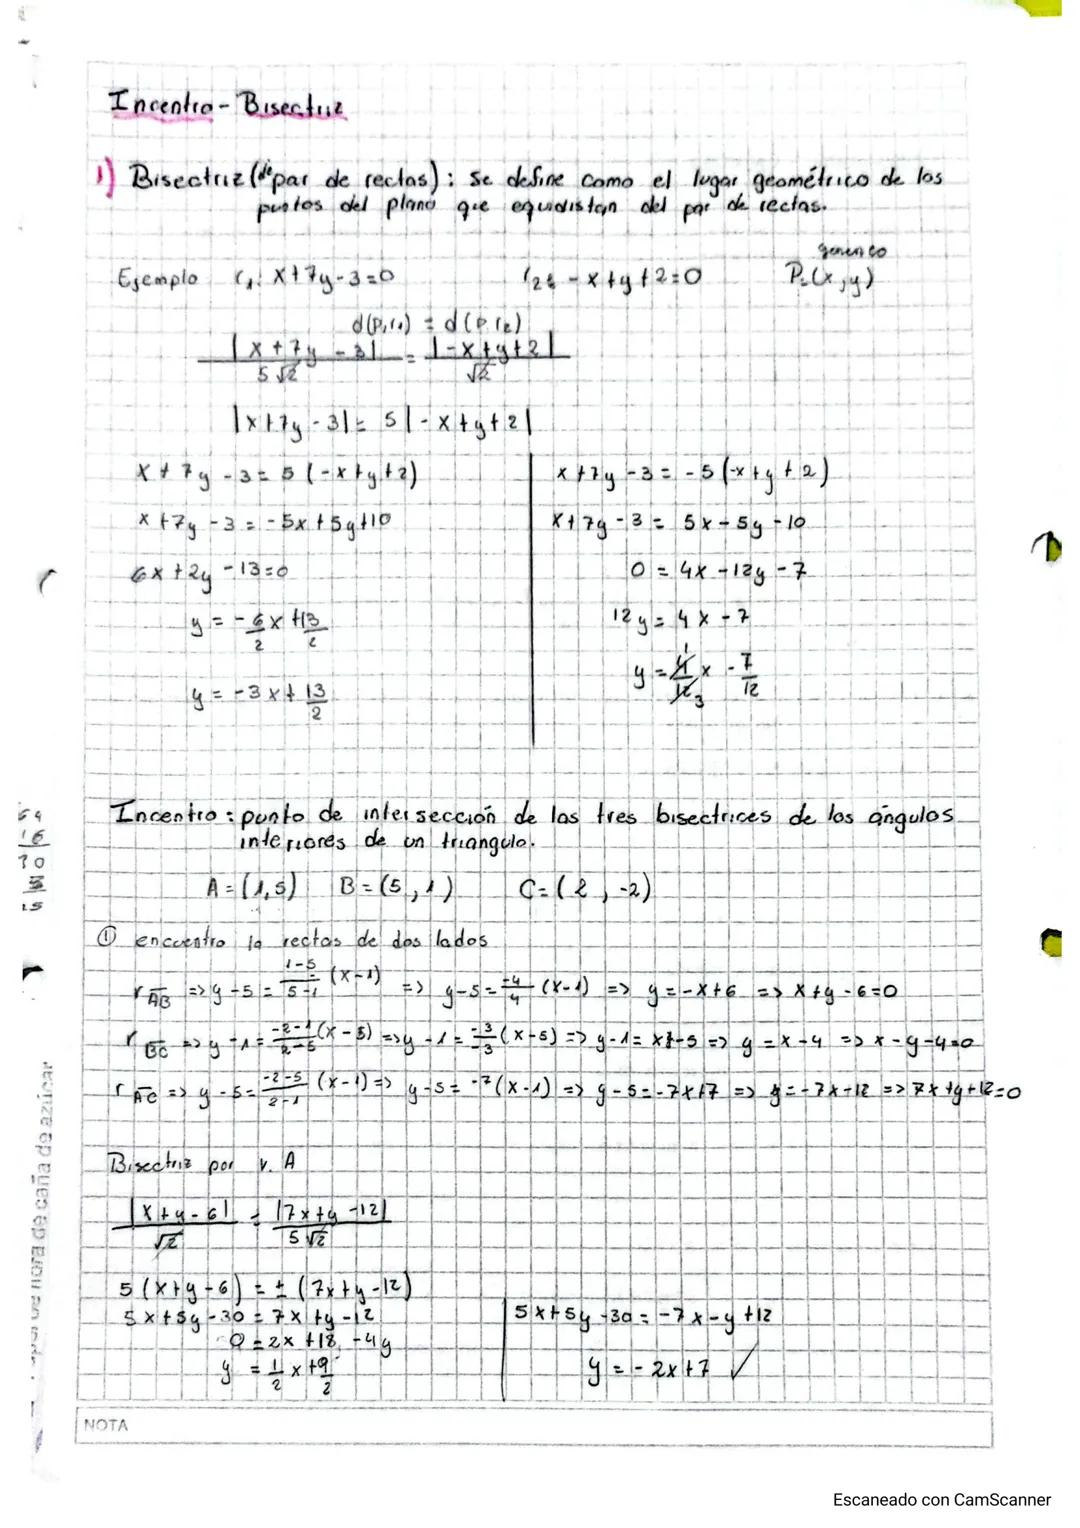 Incentro - Bisectriz
1) Bisectriz (de par de rectas): Se define como el lugar geométrico de los
puntos del plano que equidistan del par de rectas.
Ejemplo r₁: x+7y-3=0 r₂: -x+y+2=0 P=(x,y) generico
d(P,r₁) = d(P,r₂)
|x+7y-3|/5√2 = |-x+y+2|/√2
|x+7y-3| = 5|-x+y+2|
x+7y-3 = 5(-x+y+2) x+7y-3 = -5(-x+y+2)
x+7y-3 = -5x+5y+10 x+7y-3 = 5x-5y-10
6x+2y-13=0 0 = 4x-12y-7
y = -6/2 x + 13/2 12y = 4x-7
y = -3x + 13/2 y = 4/12 x - 7/12
1 3
Incentro: punto de intersección de las tres bisectrices de los ángulos
interiores de un triangulo.
A=(1,5) B=(5,1) C=(2,-2)
① encuentro la rectas de dos lados
r AB => y-5 = 1-5/5-1 (x-1) => y-5 = -4/4 (x-1) => y=-x+6 => x+y-6=0
r BC => y-1 = -2-1/2-5 (x-5) => y-1 = -3/-3 (x-5) => y-1 = x-5 => y=x-4 => x-y-4=0
r AC => y-5 = -2-5/2-1 (x-1) => y-5 = -7(x-1) => y-5=-7x+7 => y=-7x+12 => 7x+y+12=0
Bisectriz por v. A
|x+y-6|/√2 = |7x+y-12|/5√2
5(x+y-6) = ±(7x+y-12)
5x+5y-30 = 7x+y-12 5x+5y-30 = -7x-y+12
0 = 2x+18-4y
y = 1/2 x + 9/2 y = -2x+7 ✓
NOTA
16
30
15
hora de caña de azúcar
Escaneado con CamScanner